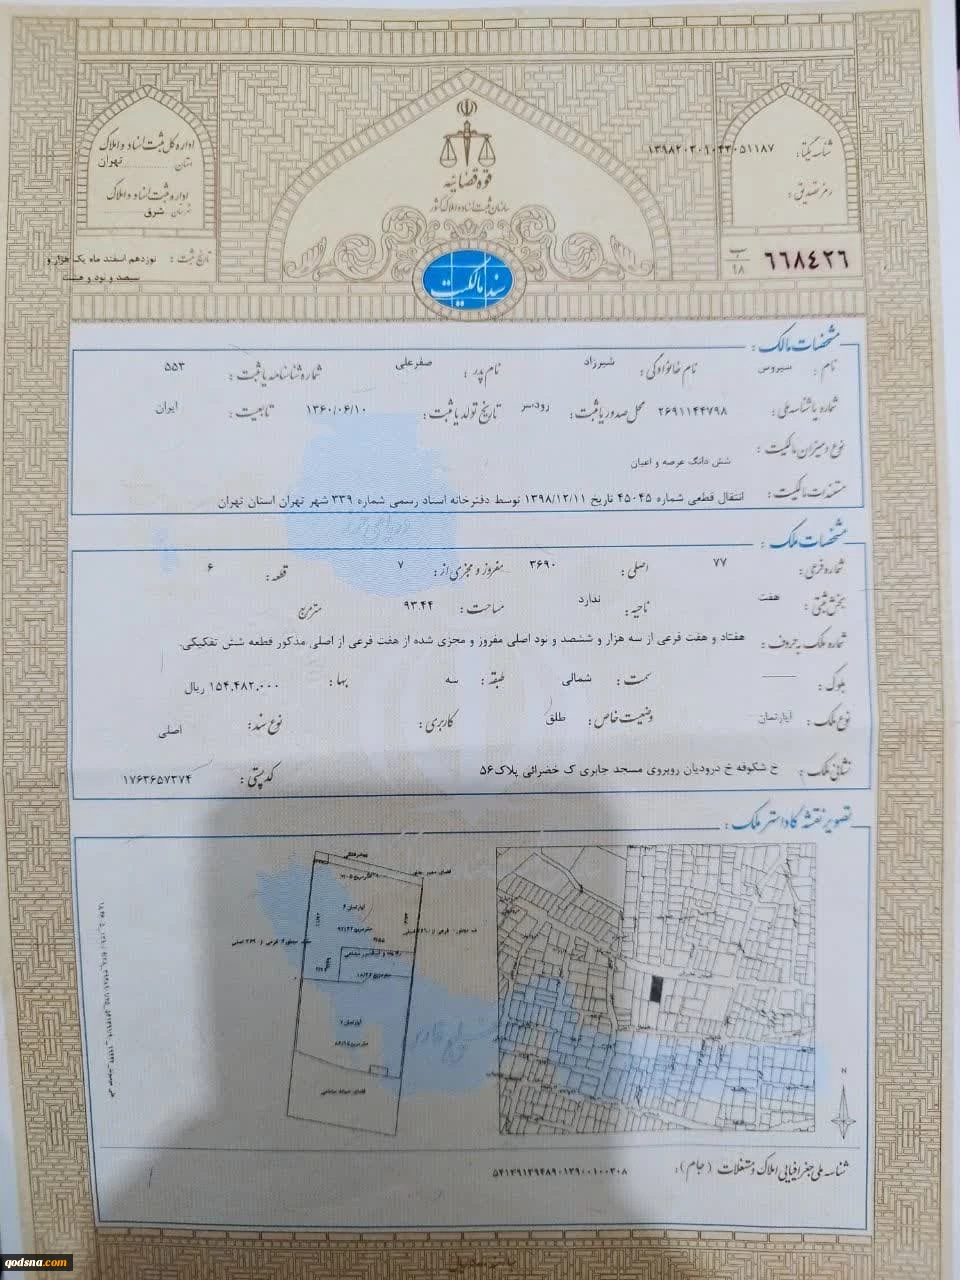 اداره کل ثبت اسناد و املاک
استان تهران
اداره ثبت اسناد و املاک
شرق
قوه قضائیه
سازمان ثبت اسناد و املاک کشور
شناسه یکتا:
رمز تصدیق:
تاریخ ثبت: نوزدهم اسفند ماه یک هزار و
سیصد و نود و هشت
سند مالکیت
۶۶۸۴۲۶ ب ۹۸
مشخصات مالک:
نام: سیروس نام خانوادگی: شیرزاد نام پدر: صفرعلی شماره شناسنامه یا ثبت: ۵۵۳
شماره یا شناسه ملی: ۲۶۹۱۱۴۴۷۹۸ محل صدور یا ثبت: رودسر تاریخ تولد یا ثبت: ۱۳۶۰/۰۶/۱۰ تابعیت: ایران
نوع و میزان مالکیت: شش دانگ عرصه و اعیان
مستندات مالکیت: انتقال قطعی شماره ۴۵۰۴۵ تاریخ ۱۳۹۸/۱۲/۱۱ توسط دفترخانه اسناد رسمی شماره ۳۳۹ شهر تهران استان تهران
مشخصات ملک:
شماره فرعی: ۷۷ اصلی: ۳۶۹۰ مفروز و مجزی از: ۷ قطعه: ۶
بخش ثبتی: هفت ناحیه: ندارد مساحت: ۹۳.۴۴ متر مربع
شماره ملک به حروف: هفتاد و هفت فرعی از سه هزار و ششصد و نود اصلی مفروز و مجزی شده از هفت فرعی از اصلی مذکور قطعه شش تفکیکی.
بلوک: سمت: شمالی طبقه: سه بها: ۱۵۴.۴۸۲.۰۰۰ ریال
نوع ملک: آپارتمان وضعیت خاص: طلق کاربری: نوع سند: اصلی
نشانی ملک: خ شکوفه خ درودیان روبروی مسجد جابری ک خضرائی پلاک ۵۶ کد پستی: ۱۷۶۳۶۵۷۳۷۴
تصویر نقشه کاداستر ملک:
آپارتمان ۶
N
شناسه ملی جغرافیایی املاک و مستغلات (جام):
qodsna.com